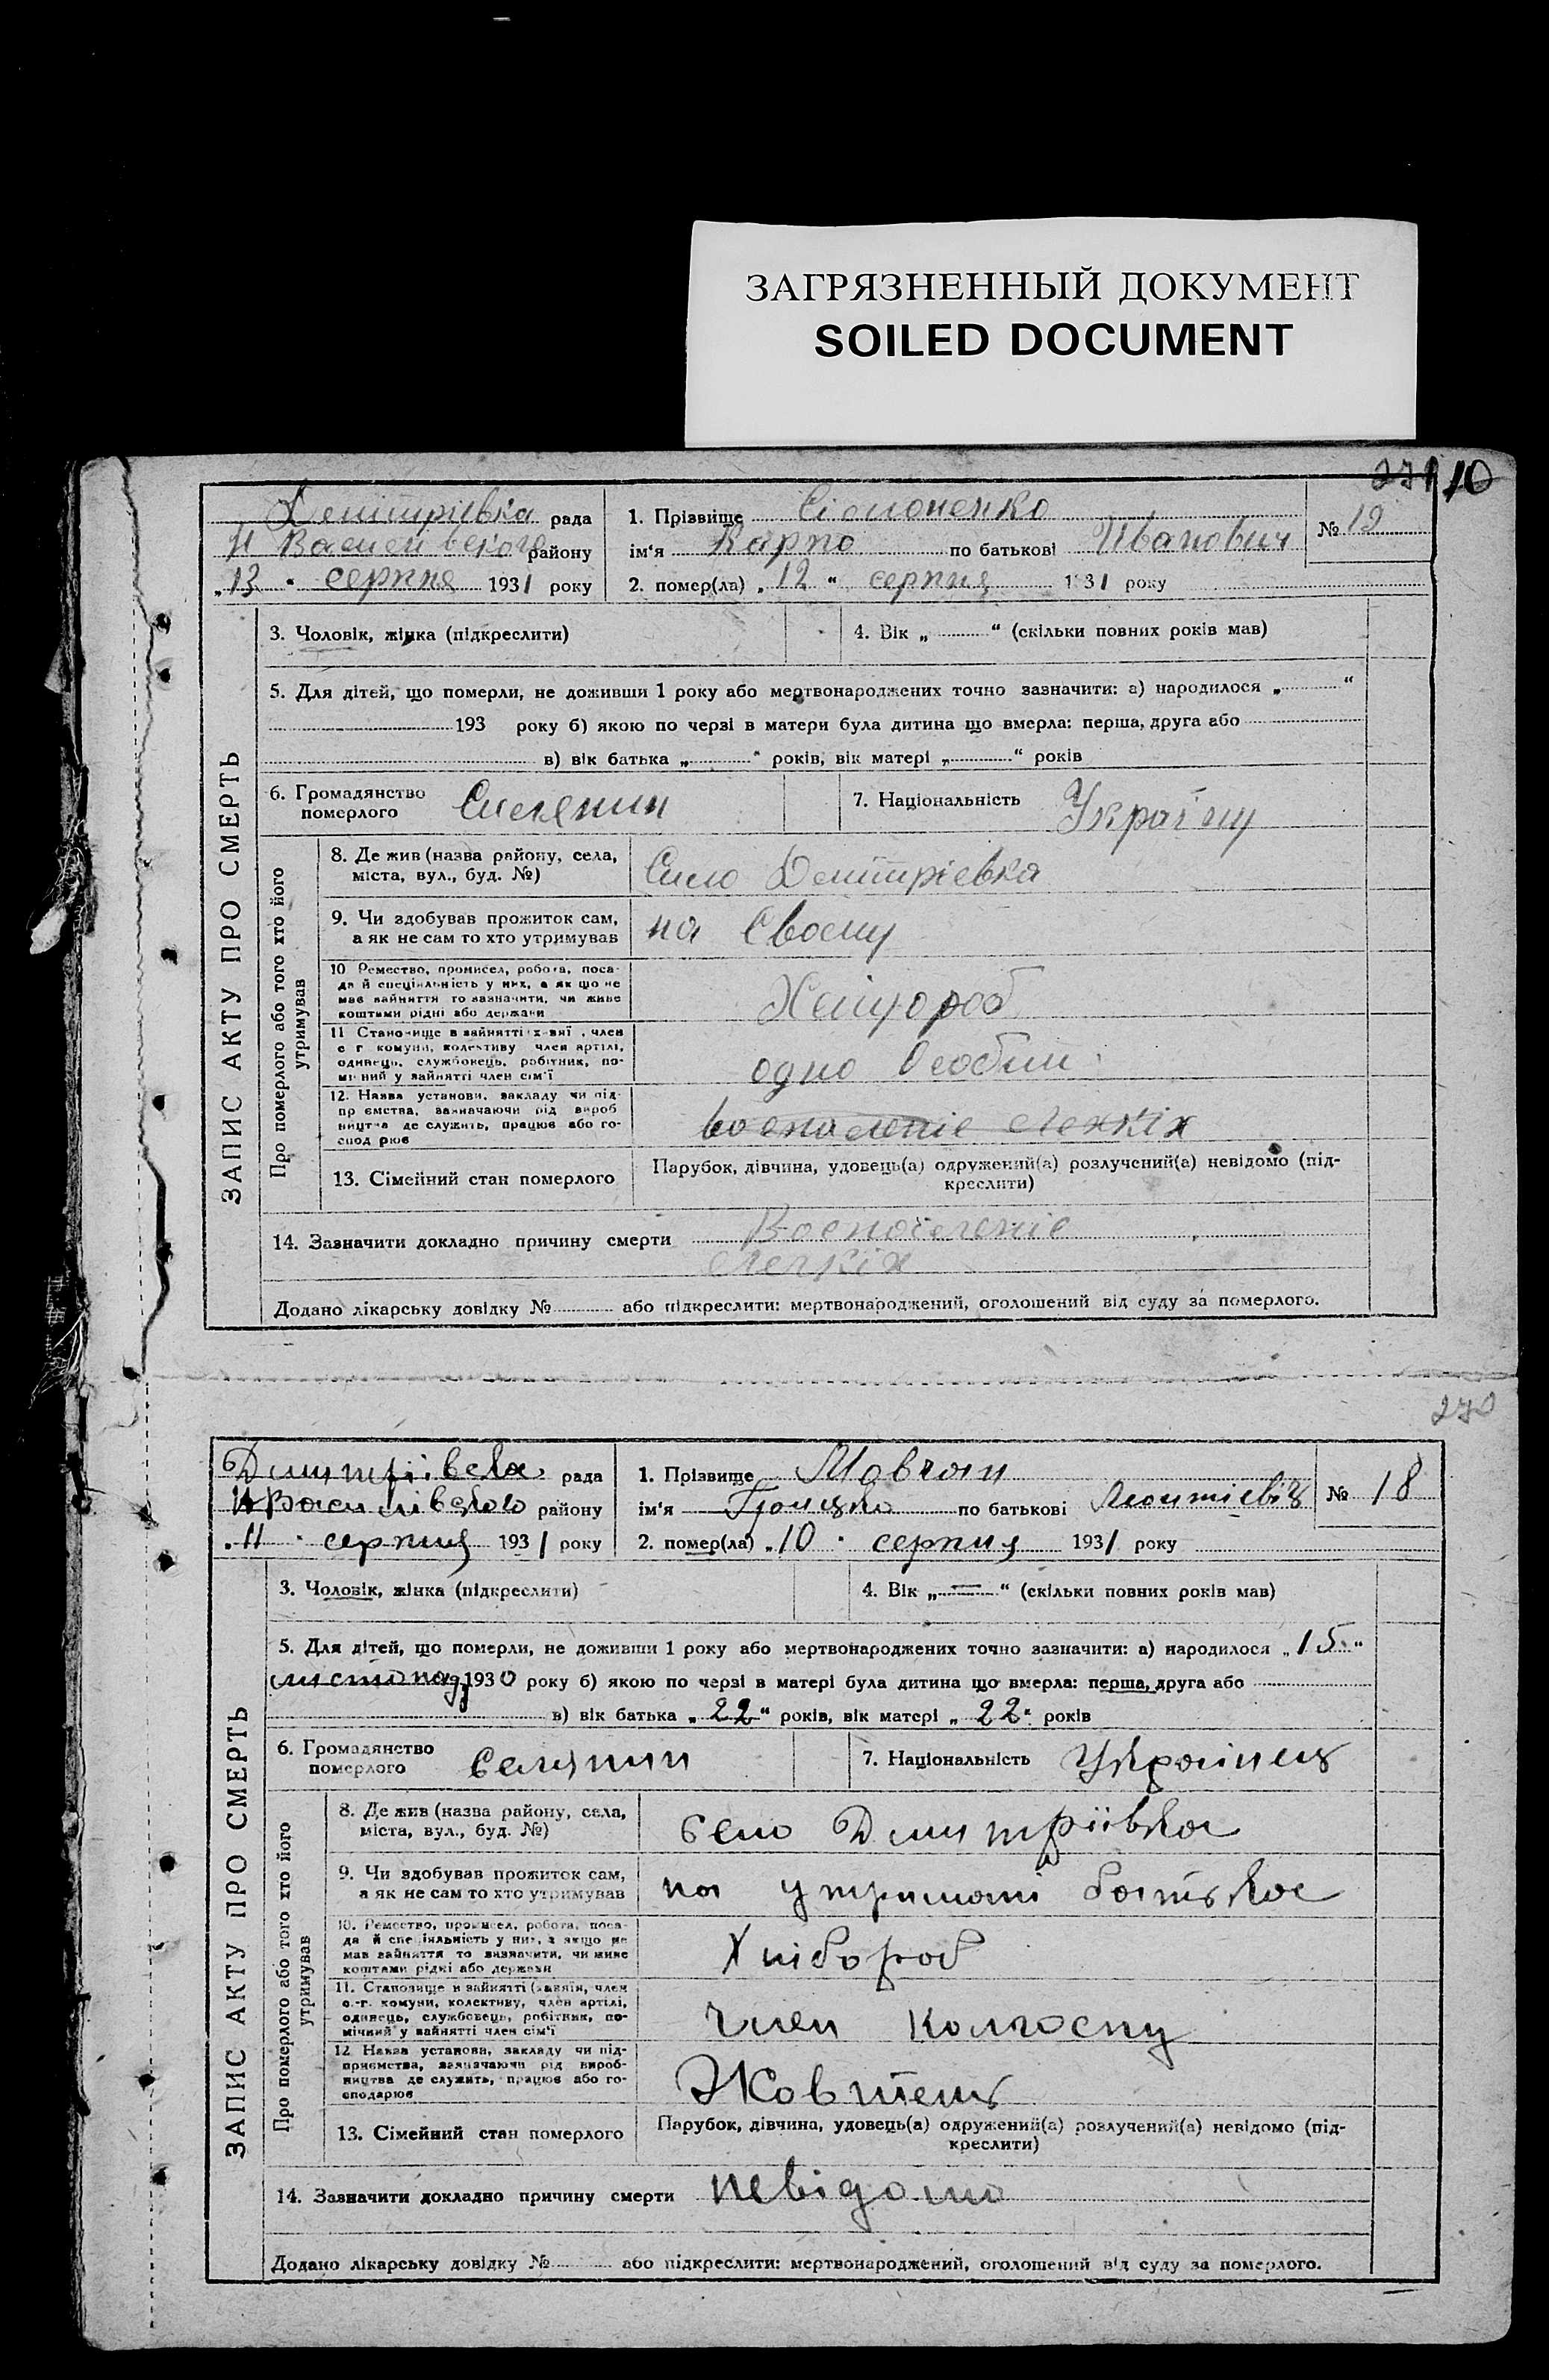 ЗАГРЯЗНЕННЫЙ ДОКУМЕНТ
SOILED DOCUMENT
271 10
Демітрієвка рада
Н Васией вского району
„13 " серпня 1931 року
1. Прізвище Сімоненко
ім'я Карпо по батькові Иванович
№ 19
2. помер(ла) „ 12 " серпня 1931 року
ЗАПИС АКТУ ПРО СМЕРТЬ
3. Чоловік, жінка (підкреслити)
4. Вік „ " (скільки повних років мав)
5. Для дітей, що померли, не доживши 1 року або мертвонароджених точно зазначити: а) народилося „ "
193 року б) якою по черзі в матери була дитина що вмерла: перша, друга або
в) вік батька „ " років, вік матері „ " років
6. Громадянство померлого Силянин
7. Національність
Про померлого або того хто його утримував
8. Де жив (назва району, села,
міста, вул., буд. №)
Сило Демітрієвка
9. Чи здобував прожиток сам,
а як не сам то хто утримував
на Своему
10 Ремество, промисел, робота, поса-
да й спеціяльність у них, а як що не
має зайняття то зазначити, чи живе
коштами рідні або держави
11 Становище в зайнятті член
с г комуни, колективу член артілі,
одинець, службовець, робітник, по-
мічний у зайнятті член сім'ї
одно Особим
12. Назва установи, закладу чи під-
пр ємства, зазначаючи рід вироб
ництва де служить, працює або го-
спод рює
13. Сімейний стан померлого
Парубок, дівчина, удовець(а) одружений(а) розлучений(а) невідомо (під-
креслити)
14. Зазначити докладно причину смерти Воспоселеніе
легкіх
Додано лікарську довідку № або підкреслити: мертвонароджений, оголошений від суду за померлого.
270
Димитріївська рада
Н Василівського району
„ 11 " серпня 1931 року
1. Прізвище Мовчан
ім'я Грицько по батькові Леонтієвіч
№ 18
2. помер(ла) „ 10 " серпня 1931 року
ЗАПИС АКТУ ПРО СМЕРТЬ
3. Чоловік, жінка (підкреслити)
4. Вік „ — " (скільки повних років мав)
5. Для дітей, що померли, не доживши 1 року або мертвонароджених точно зазначити: а) народилося „ 15 "
листопад 1930 року б) якою по черзі в матері була дитина що вмерла: перша, друга або
в) вік батька „ 22 " років, вік матері „ 22 " років
6. Громадянство померлого Селянин
7. Національність Українець
Про померлого або того хто його утримував
8. Де жив (назва району, села,
міста, вул., буд. №)
село Димитріївка
9. Чи здобував прожиток сам,
а як не сам то хто утримував
на утримані батька
10. Ремество, промисел, робота, поса-
да й спеціяльність у них, а якщо не
має зайняття то визначити, чи живе
коштами рідні або держави
Хлібороб
11. Становище в зайнятті (хазяїн, член
с.-г. комуни, колективу, член артілі,
одинець, службовець, робітник, по-
мічний у зайнятті член сім'ї
Член колгоспу
12 Назва установи, закладу чи під-
приємства, зазначаючи рід вироб-
ництва де служить, працює або го-
сподарює
Жовтень
13. Сімейний стан померлого
Парубок, дівчина, удовець(а) одружений(а) розлучений(а) невідомо (під-
креслити)
14. Зазначити докладно причину смерти невідомо
Додано лікарську довідку № або підкреслити: мертвонароджений, оголошений від суду за померлого.